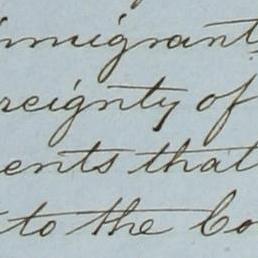 immigrants
reignty of
ents that
to the Co